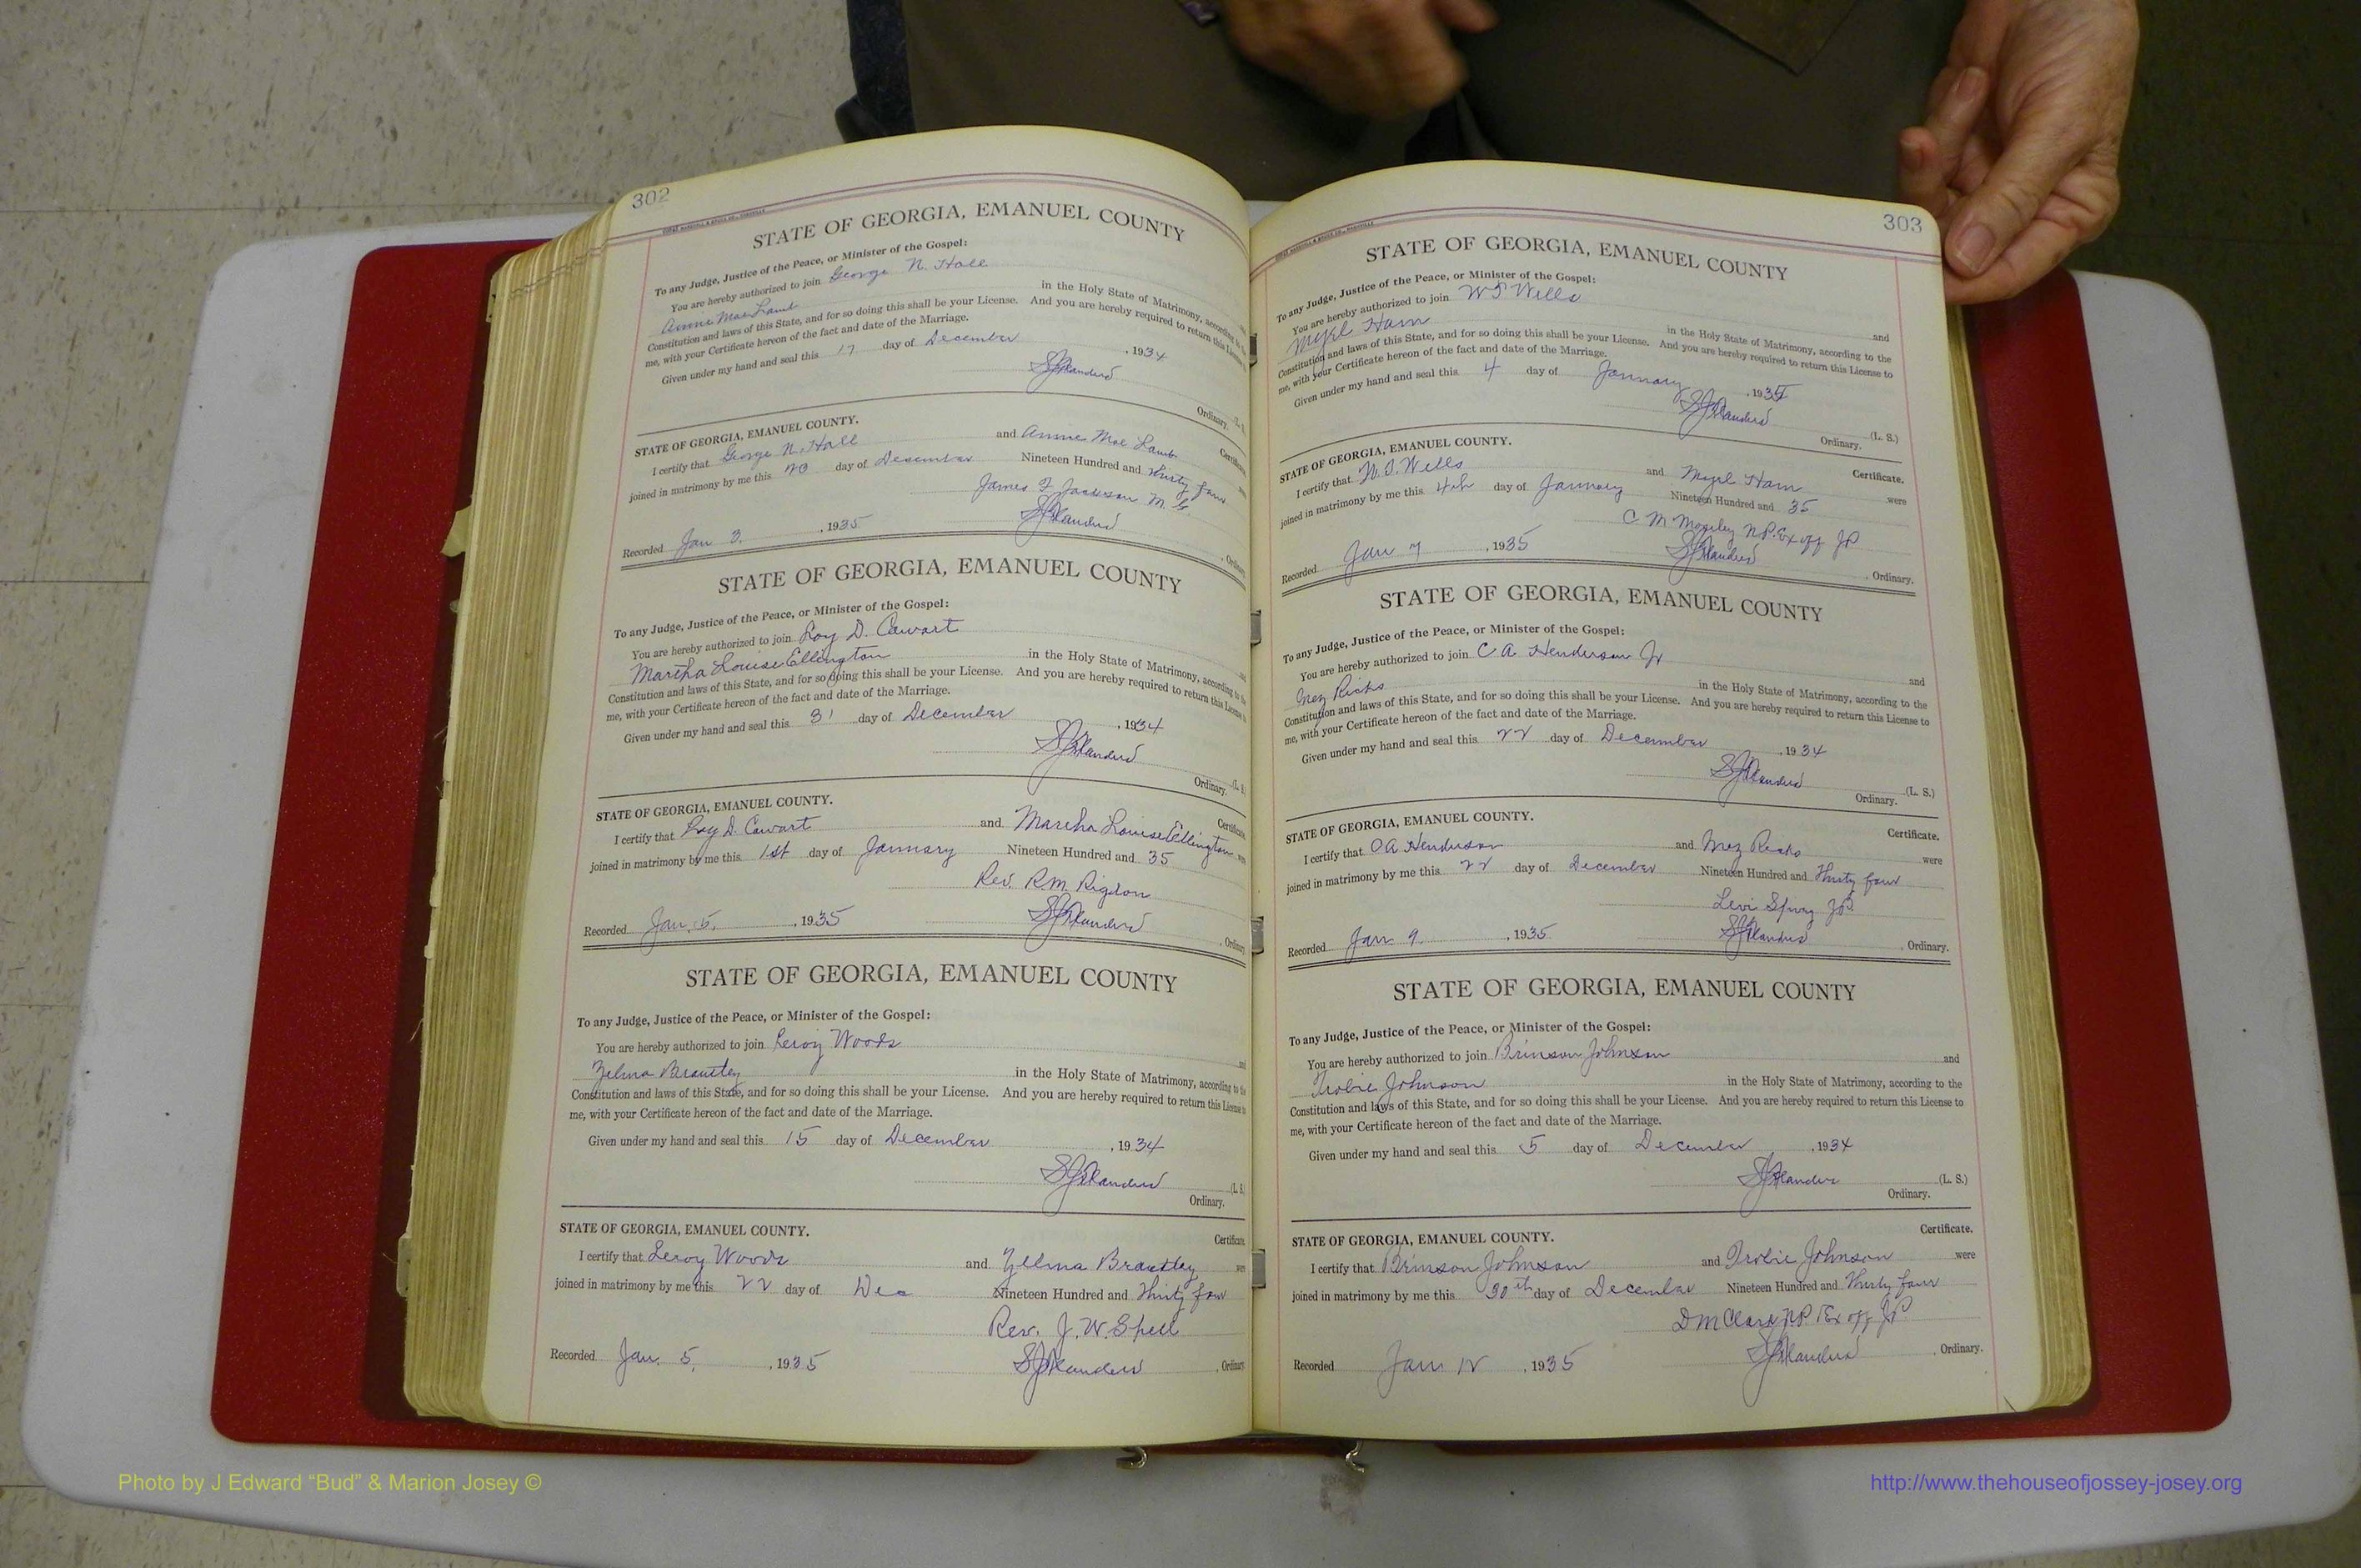 302
STATE OF GEORGIA, EMANUEL COUNTY
To any Judge, Justice of the Peace, or Minister of the Gospel:
You are hereby authorized to join George N. Hall
Annie Mae Lamb in the Holy State of Matrimony, according to the
Constitution and laws of this State, and for so doing this shall be your License. And you are hereby required to return this License to
me, with your Certificate hereon of the fact and date of the Marriage.
Given under my hand and seal this 17 day of December, 1934
(L. S.)
Ordinary.
STATE OF GEORGIA, EMANUEL COUNTY. Certificate
I certify that George N. Hall and Annie Mae Lamb
joined in matrimony by me this 20 day of December Nineteen Hundred and thirty four
James F Jackson M. G.
Recorded Jan 3, 1935, Ordinary
STATE OF GEORGIA, EMANUEL COUNTY
To any Judge, Justice of the Peace, or Minister of the Gospel:
You are hereby authorized to join Roy D. Cowart and
Martha Louise Ellington in the Holy State of Matrimony, according to the
Constitution and laws of this State, and for so doing this shall be your License. And you are hereby required to return this License to
me, with your Certificate hereon of the fact and date of the Marriage.
Given under my hand and seal this 31 day of December, 1934
(L. S.)
Ordinary.
STATE OF GEORGIA, EMANUEL COUNTY. Certificate
I certify that Roy D. Cowart and Martha Louise Ellington were
joined in matrimony by me this 1st day of January Nineteen Hundred and 35
Rev. R.M. Rigdon
Recorded Jan. 5, 1935, Ordinary
STATE OF GEORGIA, EMANUEL COUNTY
To any Judge, Justice of the Peace, or Minister of the Gospel:
You are hereby authorized to join Leroy Woods and
Zelma Brantley in the Holy State of Matrimony, according to the
Constitution and laws of this State, and for so doing this shall be your License. And you are hereby required to return this License to
me, with your Certificate hereon of the fact and date of the Marriage.
Given under my hand and seal this 15 day of December, 1934
(L. S.)
Ordinary.
STATE OF GEORGIA, EMANUEL COUNTY. Certificate
I certify that Leroy Woods and Zelma Brantley were
joined in matrimony by me this 22 day of Dec Nineteen Hundred and thirty four
Rev. J. W. Spell
Recorded Jan. 5, 1935, Ordinary
303
STATE OF GEORGIA, EMANUEL COUNTY
To any Judge, Justice of the Peace, or Minister of the Gospel:
You are hereby authorized to join Wells and
Ham in the Holy State of Matrimony, according to the
Constitution and laws of this State, and for so doing this shall be your License. And you are hereby required to return this License to
me, with your Certificate hereon of the fact and date of the Marriage.
Given under my hand and seal this 4 day of January, 1935
(L. S.)
Ordinary.
STATE OF GEORGIA, EMANUEL COUNTY. Certificate.
I certify that Wells and Ham were
joined in matrimony by me this 4th day of January Nineteen Hundred and 35
C M Moseley N.P. Ex off JP
Recorded Jan 7, 1935, Ordinary.
STATE OF GEORGIA, EMANUEL COUNTY
To any Judge, Justice of the Peace, or Minister of the Gospel:
You are hereby authorized to join C A Henderson Jr and
Inez Ricks in the Holy State of Matrimony, according to the
Constitution and laws of this State, and for so doing this shall be your License. And you are hereby required to return this License to
me, with your Certificate hereon of the fact and date of the Marriage.
Given under my hand and seal this 22 day of December, 1934
(L. S.)
Ordinary.
STATE OF GEORGIA, EMANUEL COUNTY. Certificate.
I certify that CA Henderson and Inez Ricks were
joined in matrimony by me this 22 day of December Nineteen Hundred and thirty four
Levi JP.
Recorded Jan 9, 1935, Ordinary.
STATE OF GEORGIA, EMANUEL COUNTY
To any Judge, Justice of the Peace, or Minister of the Gospel:
You are hereby authorized to join Brinson Johnson and
Johnson in the Holy State of Matrimony, according to the
Constitution and laws of this State, and for so doing this shall be your License. And you are hereby required to return this License to
me, with your Certificate hereon of the fact and date of the Marriage.
Given under my hand and seal this 5 day of December, 1934
(L. S.)
Ordinary.
STATE OF GEORGIA, EMANUEL COUNTY. Certificate.
I certify that Brinson Johnson and Johnson were
joined in matrimony by me this 30th day of December Nineteen Hundred and thirty four
DM Clark NP Ex off JP
Recorded Jan 12, 1935, Ordinary.
Photo by J Edward “Bud” & Marion Josey ©
http://www.thehouseofjossey-josey.org